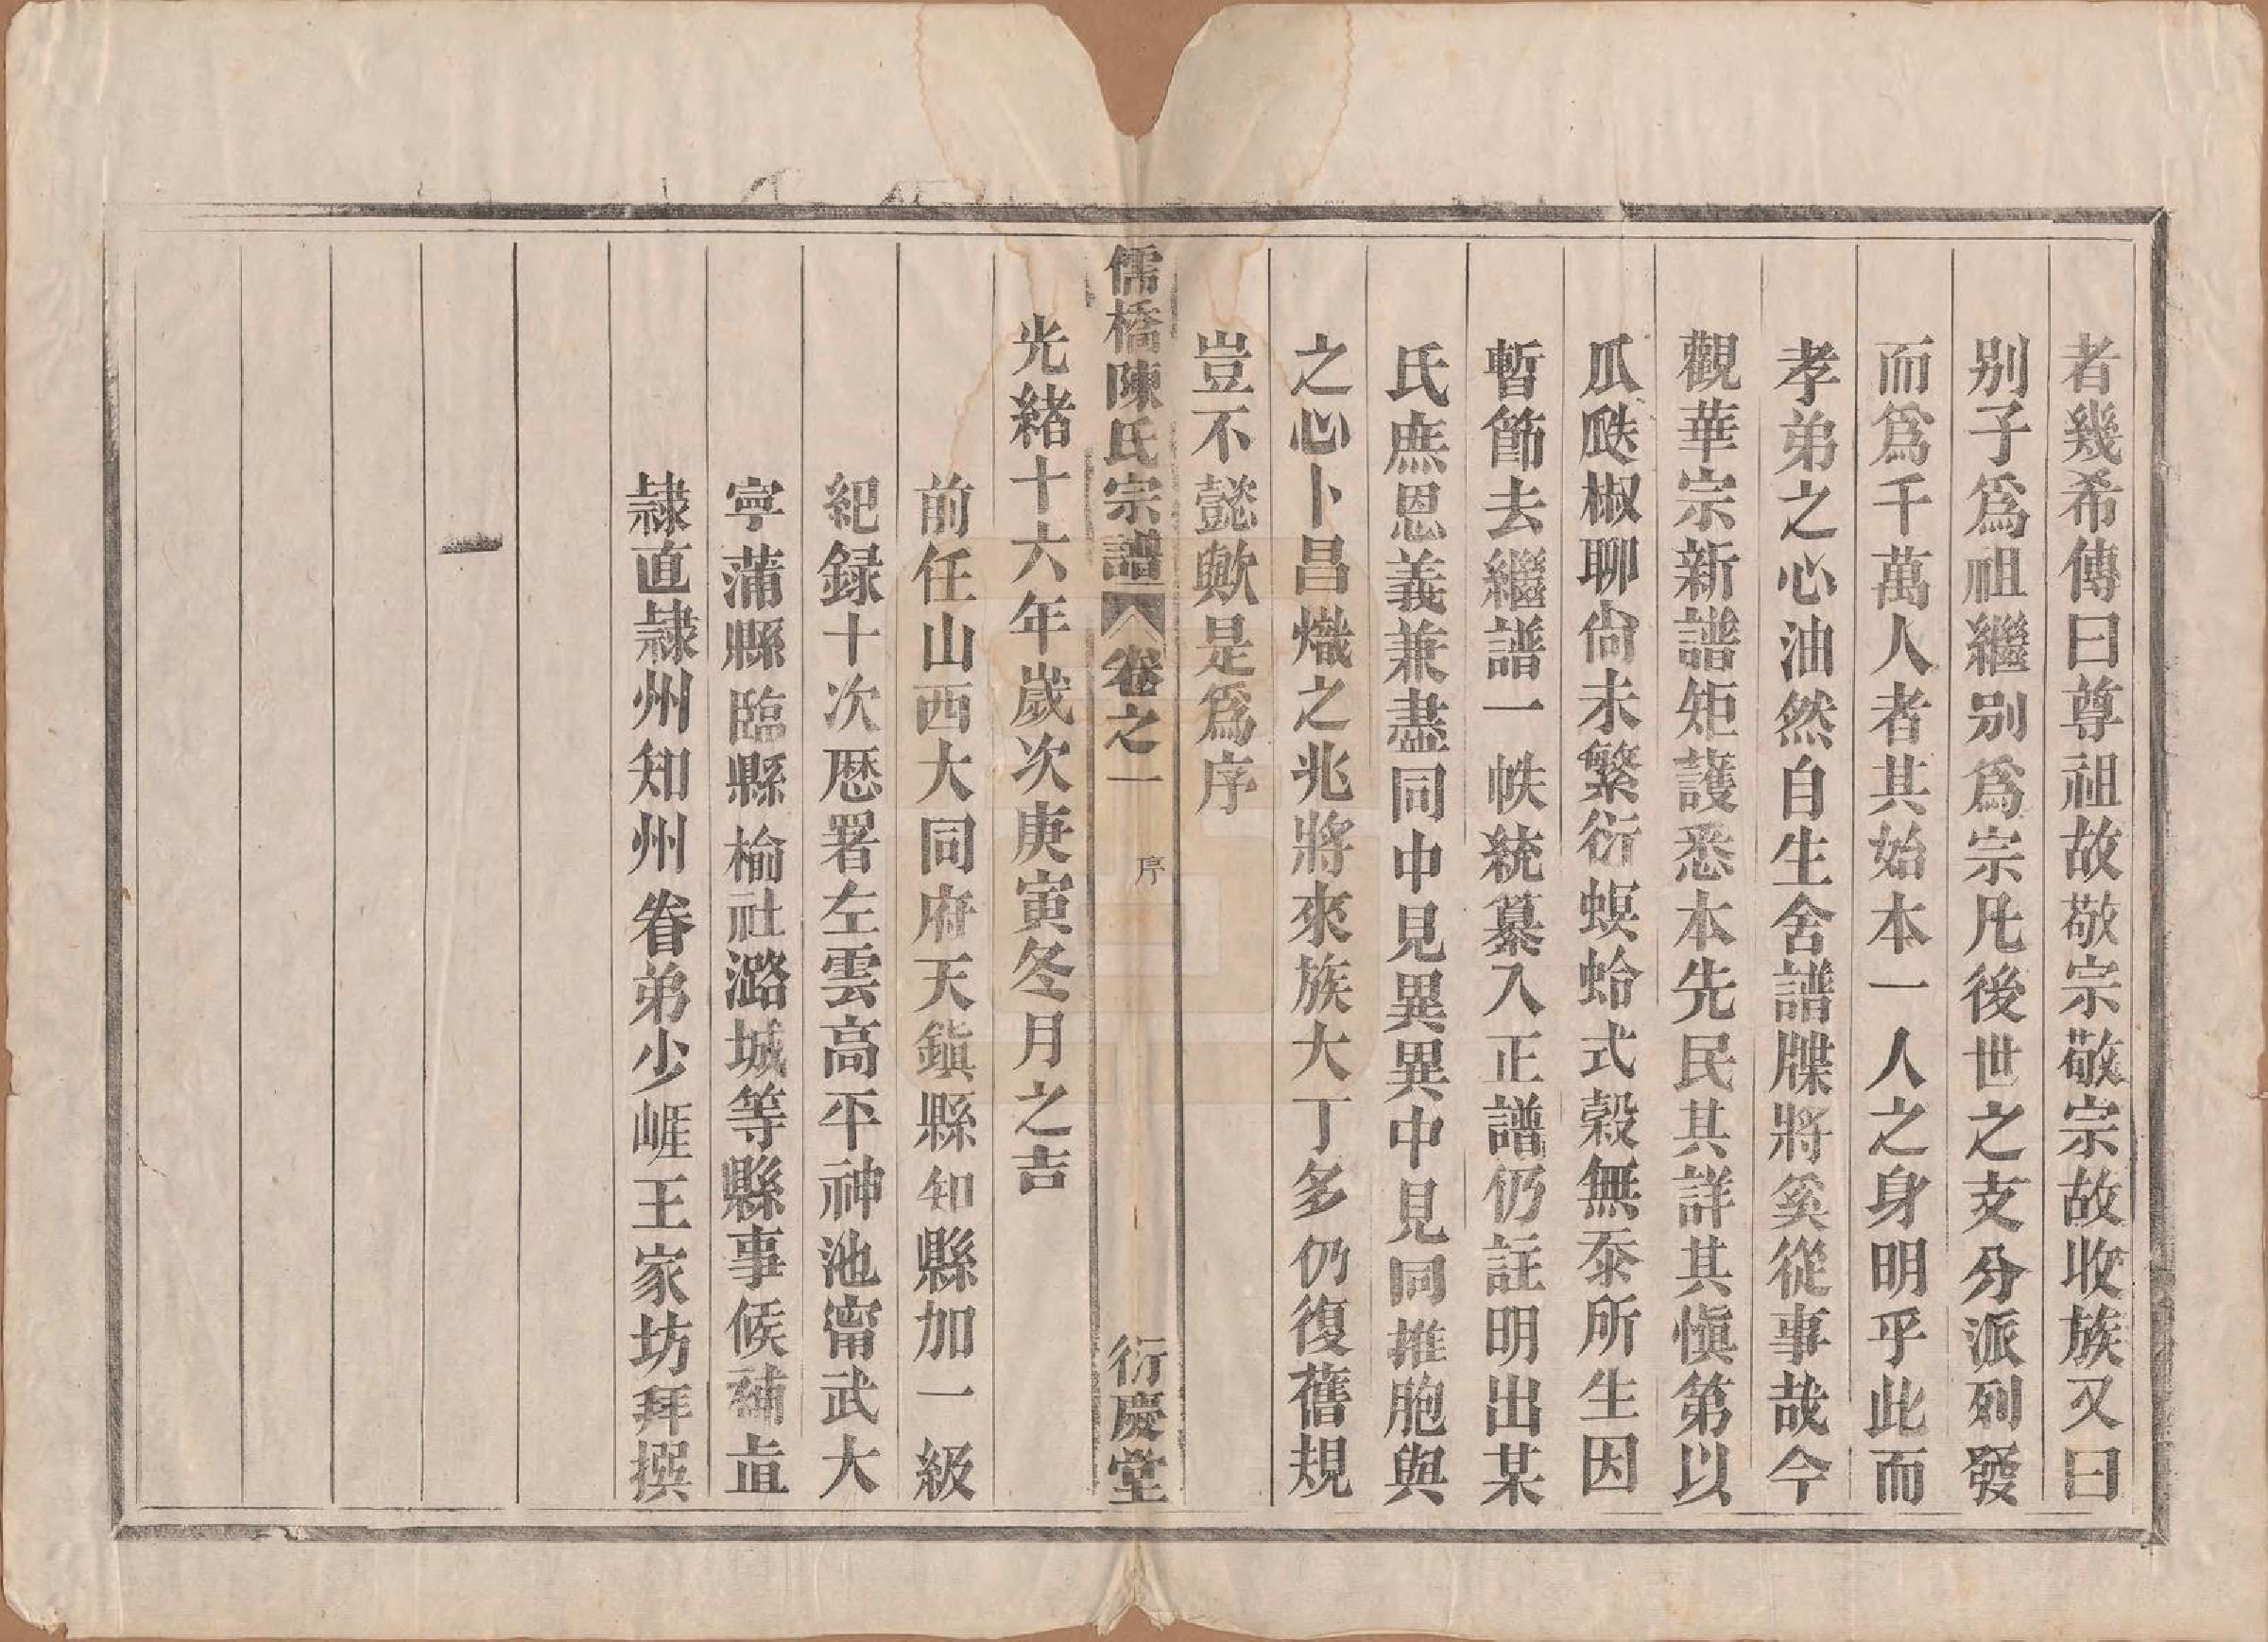 者幾希傳曰尊祖故敬宗敬宗故收族又曰
别子爲祖繼别爲宗凡後世之支分派列發
而爲千萬人者其始本一人之身明乎此而
孝弟之心油然自生舍譜牒將奚從事哉今
觀華宗新譜矩護悉本先民其詳其愼第以
瓜瓞椒聊尙未繁衍螟蛉式穀無忝所生因
暫節去繼譜一帙統纂入正譜仍註明出某
氏庶恩義兼盡同中見異異中見同推胞與
之心卜昌熾之兆將來族大丁多仍復舊規
豈不懿歟是爲序
儒橋陳氏宗譜 卷之一 序 一 衍慶堂
光緒十六年歲次庚寅冬月之吉
前任山西大同府天鎮縣知縣加一級
紀録十次歷署左雲高平神池甯武大
寧蒲縣臨縣榆社潞城等縣事候補直
隷直隷州知州眷弟少崕王家坊拜撰